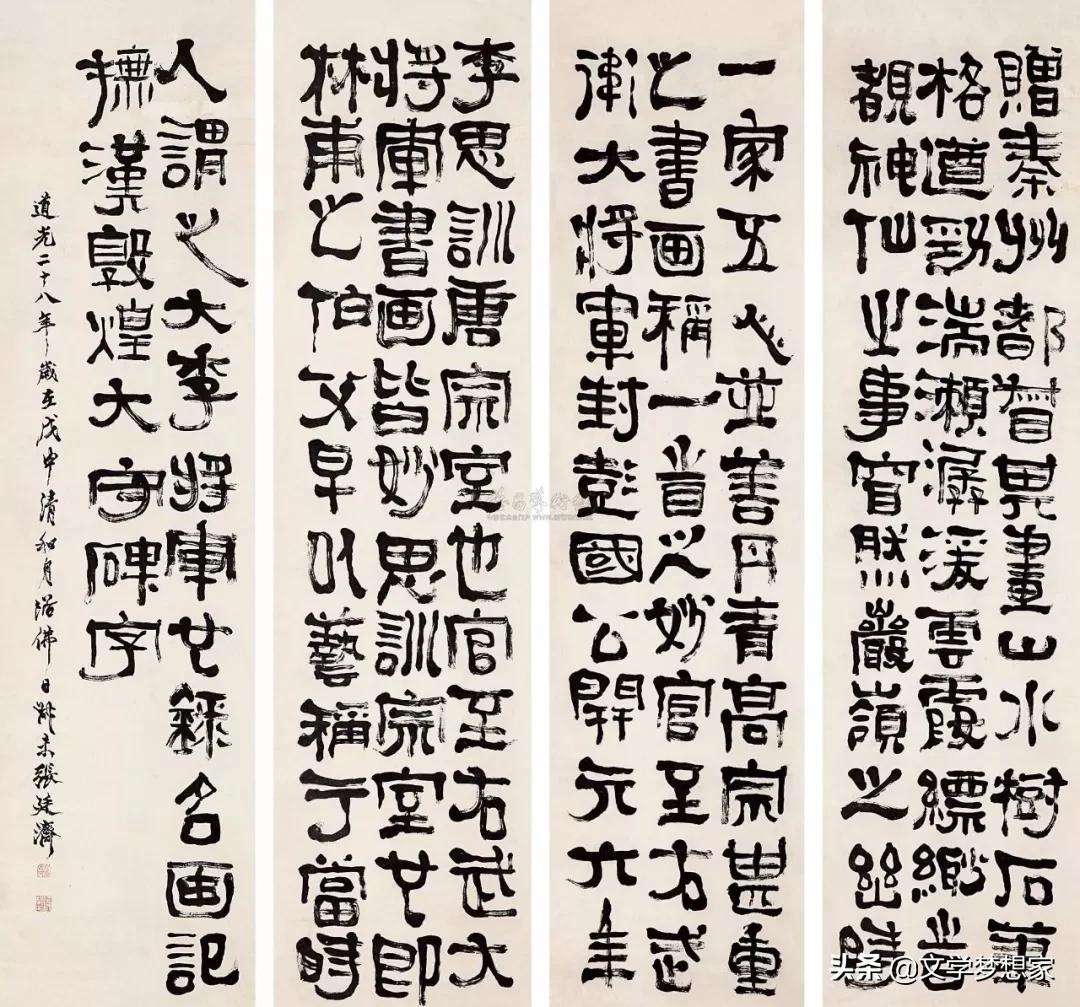 贈秦州都督其畫山水樹石筆
格遒勁湍瀨潺湲雲霞縹緲時
覩神仙之事窅然巖嶺之幽時
一家五人並善丹青高宗甚重
之書画稱一時之妙官至右武
衛大將軍封彭國公開元六年
李思訓唐宗室也官至右武大
將軍書画皆妙思訓宗室也即
林甫之伯父早以藝稱于當時
人謂之大李將軍也錄名画記
橅漢敦煌大守碑字
道光二十八年歲在戊申清和月浴佛日叔未張廷濟
头条@文学梦想家